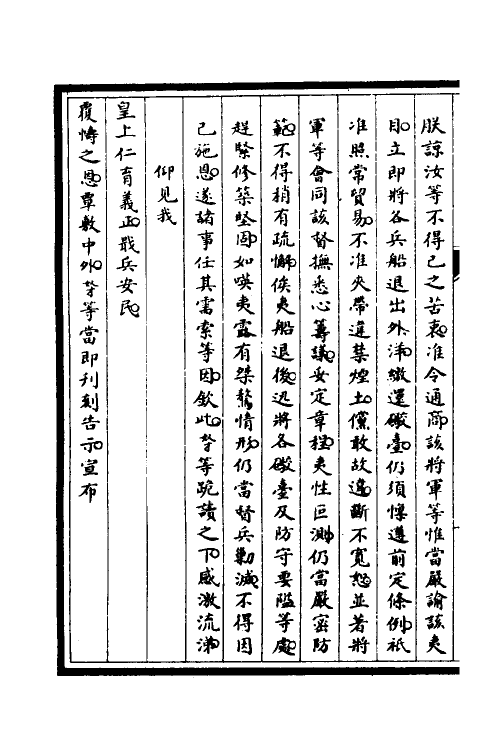 朕諒汝等不得已之苦衷准令通商該將軍等惟當嚴諭該夷
目立即將各兵船退出外洋繳還礮臺仍須懍遵前定條例祇
准照常貿易不准夾帶違禁煙土儻敢故違斷不寬恕並著將
軍等會同該督撫悉心籌議妥定章程夷性叵測仍當嚴密防
範不得稍有疏懈俟夷船退後迅將各礮臺及防守要隘等處
趕緊修築堅固如㗲夷露有桀驁情形仍當督兵勦滅不得因
已施恩遂諸事任其需索等因欽此孥等跪讀之下感激流涕
仰見我
皇上仁育義正戢兵安民
覆幬之恩覃敷中外孥等當即刊刻告示宣布